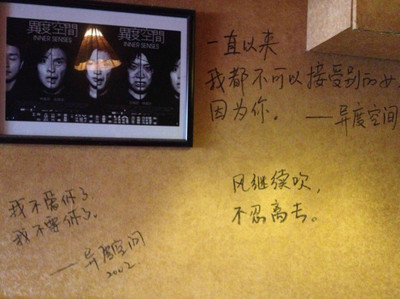 異度空間
INNER SENSES
一直以来
我都不可以接受别的女
因为你。 ——异度空间
风继续吹,
不忍离去。
我不爱你了
我不要你了。
——异度空间
2002